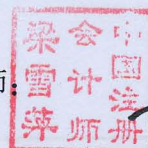 中国注册
会计师
梁雪萍